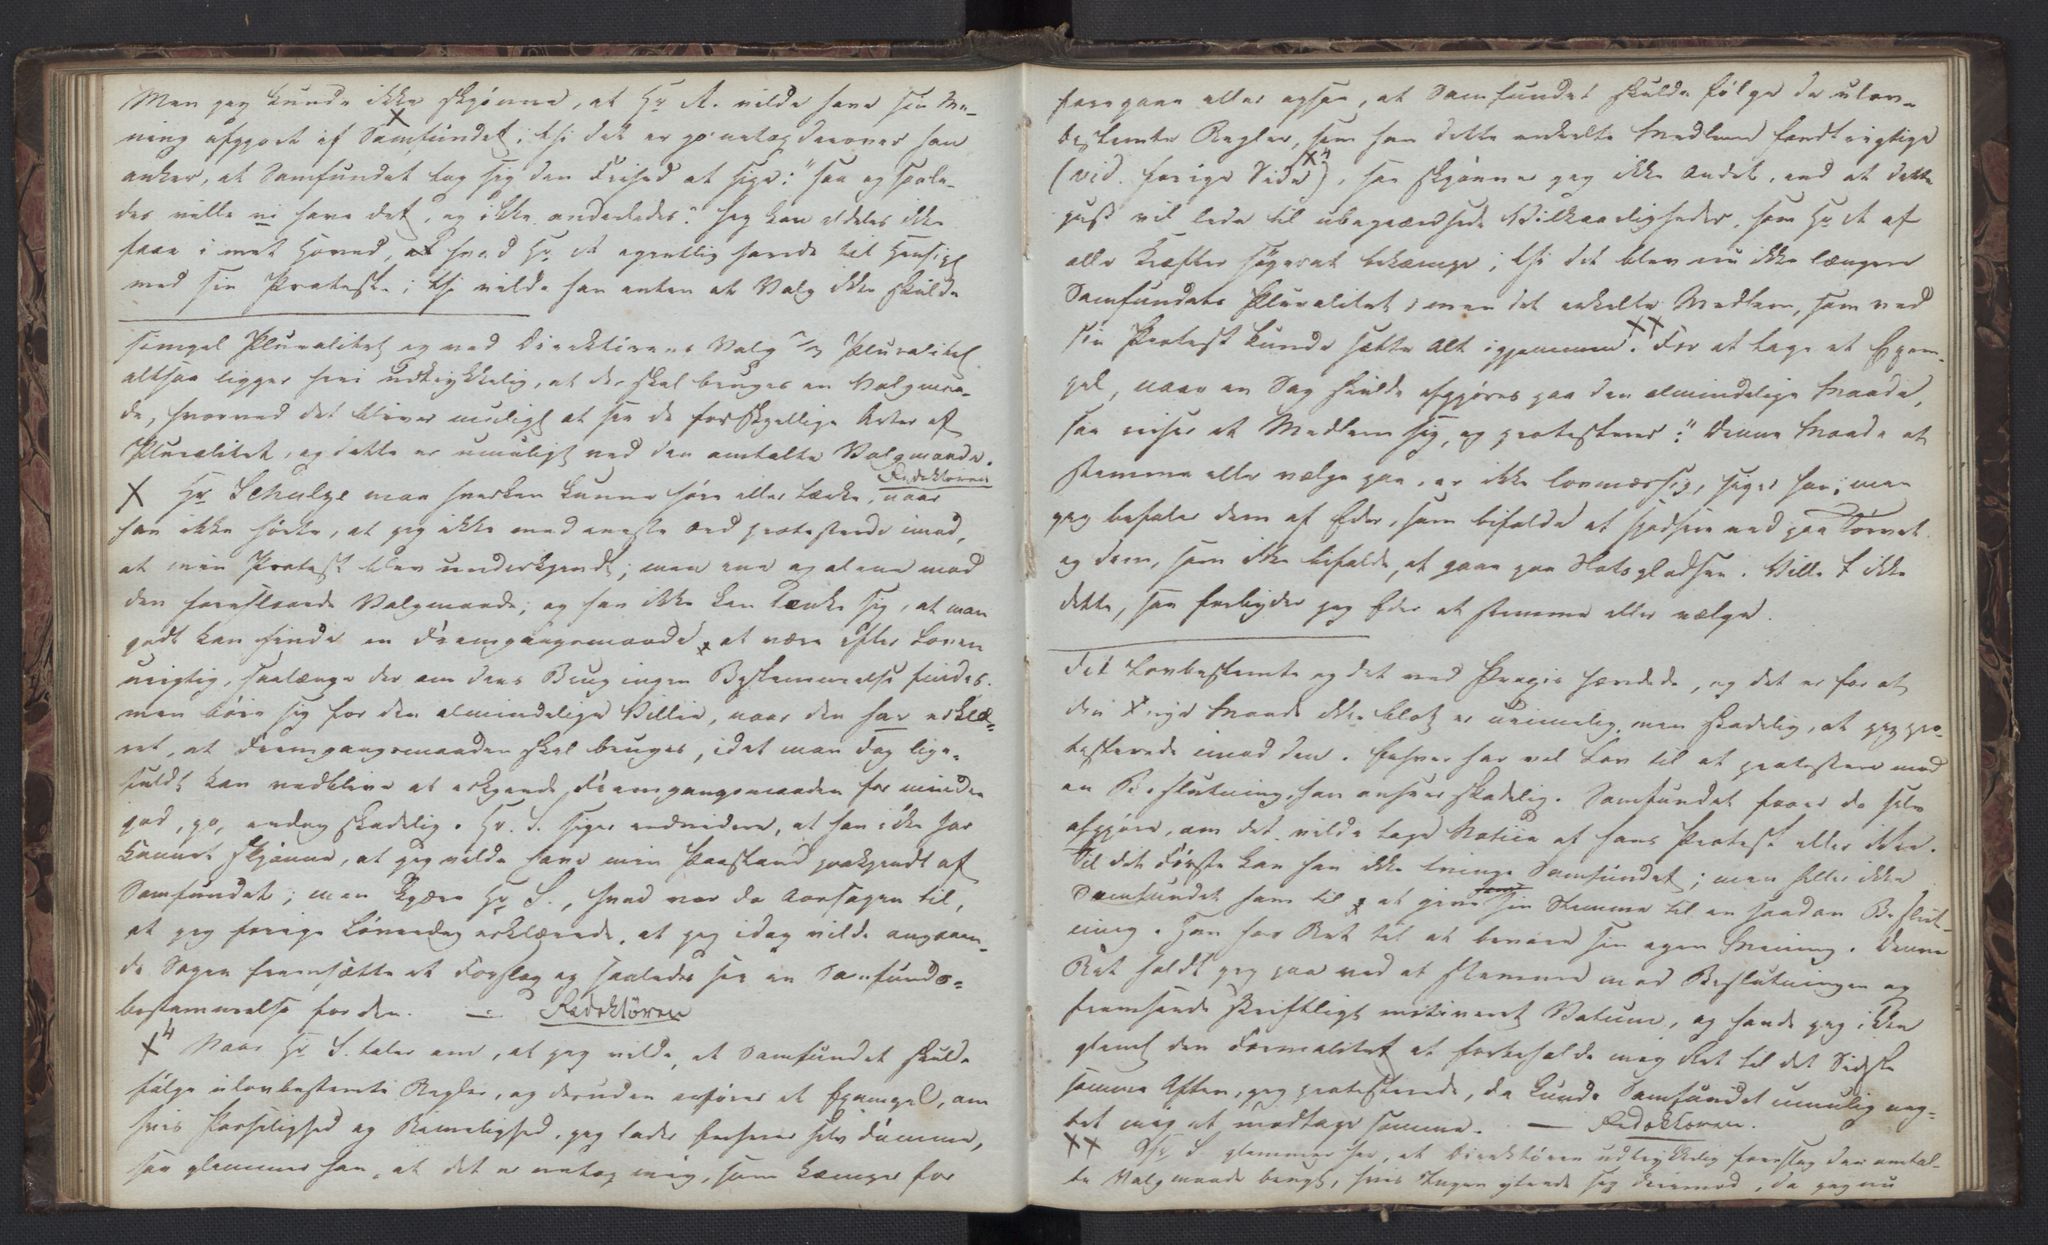 Men jeg kunde ikke skjønne, at Hr A. vilde have sin Me-
ning afgjort af Samfundet; thi det er jo netop derover han
anker, at Samfundet tog sig den Frihed at sige: "saa og saale-
des ville vi have det, og ikke anderledes." Jeg kan aldeles ikke
faae i mit Hoved, hvad Hr A egentlig havde til Hensigt
med sin Protest; thi vilde han enten at Valg ikke skulde
simpel Pluralitet og ved Direktionens Valg 2/3 Pluralitet
altsaa ligger heri udtrykkelig, at der skal bruges en Valgmaa-
de, hvorved det bliver muligt at see de forskjellige Arter af
Pluralitet, og dette er umuligt ved den omtalte Valgmaade.
Redaktøren
X Hr Schulze maa hverken kunne høre eller tænke, naar
han ikke hørte, at jeg ikke med eneste Ord protesterede imod,
at min Protest blev underkjendt; men ene og alene mod
den foreslaaede Valgmaade; og han ikke kan tænke sig, at man
godt kan finde en Fremgangsmaade at være efter Loven
urigtig, saalænge der om dens Brug ingen Bestemmelse findes.
men bøie sig for den almindelige Villie, naar den har erklæ-
ret, at Fremgangsmaaden skal bruges, idet man dog lige-
fuldt kan vedblive at erkjende Fremgangsmaaden for mindre
god, ja, endog skadelig. Hr. S. siger endvidere, at han ikke har
kunnet skjønne, at jeg vilde have min Paastand paakjendt af
Samfundet; men kjære Hr S., hvad var da Aarsagen til,
at jeg forrige Løverdag erklærede, at jeg idag vilde angaaen-
de Sagen fremsætte et Forslag og saaledes see en Samfunds-
bestemmelse for den. — Redaktøren
X4 Naar Hr S. taler om, at jeg vilde, at Samfundet skulde
følge ulovbestemte Regler, og desuden anfører et Exempel, om
hvis Paslighed og Rimelighed jeg lader Enhver selv dømme,
saa glemmer han, at det er netop mig, som kæmper for
foregaae eller ogsaa, at Samfundet skulde følge de ulov-
bestemte Regler, som han dette enkelte Medlem fandt rigtige
(vid. forrige Side X4), saa skjønner jeg ikke Andet, end at dette
just vil lede til ubegrændsede Vilkaarligheder, som Hr A af
alle Kræfter søger at bekæmpe; thi det blev nu ikke længere
Samfundets Pluralitet, men det enkelte Medlem, som ved
sin Protest kunde sætte Alt igjennem. XX For at tage et Exem-
pel, naar en Sag skulde afgjøres paa den almindelige Maade,
saa reiser et Medlem sig, og protesterer: "Denne Maade at
stemme eller vælge paa, er ikke lovmæssig, siger han; men
jeg befaler dem af Eder, som bifalde at sætte ned paa Torvet
og dem, som ikke bifalde, at gaae paa Slotspladsen. Ville I ikke
dette, saa forbyder jeg Eder at stemme eller vælge.
det Lovbestemte og det ved Praxis hævdede, og det er for at
den nye Maade ikke blot er urimelig, men skadelig, at jeg pro-
testerede imod den. Enhver har vel Lov til at protestere mod
en Beslutning han anseer skadelig. Samfundet faaer da selv
afgjøre, om det vilde tage Notice af hans Protest eller ikke.
Til det Første kan han ikke tvinge Samfundet; men heller ikke
Samfundet ham til at give sin Stemme til en saadan Beslut-
ning. Han har Ret til at bevare sin egen Mening. Denne
Ret holdt jeg paa ved at stemme mod Beslutningen og
fremsende skriftligt motiveret Votum, og havde jeg ikke
glemt den Formalitet at forbeholde mig Ret til det Sidste
samme Aften, jeg protesterede, da kunde Samfundet umulig næg-
tet mig at modtage samme. — Redaktøren.
XX Hr S glemmer her, at Direktøren udtrykkelig foreslog den omtal-
te Valgmaade brugt, hvis Ingen yttrede sig derimod, da jeg nu